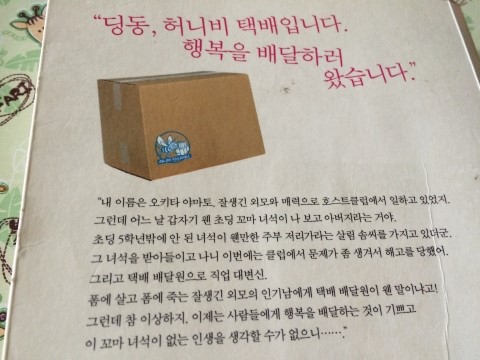 “딩동, 허니비 택배입니다.
행복을 배달하러
왔습니다.”
“내 이름은 오키타 야마토, 잘생긴 외모와 매력으로 호스트클럽에서 일하고 있었지.
그런데 어느 날 갑자기 웬 초딩 꼬마 녀석이 나 보고 아버지라는 거야.
초딩 5학년밖에 안 된 녀석이 웬만한 주부 저리가라는 살림 솜씨를 가지고 있더군.
그 녀석을 받아들이고 나니 이번에는 클럽에서 문제가 좀 생겨서 해고를 당했어.
그리고 택배 배달원으로 직업 대변신.
폼에 살고 폼에 죽는 잘생긴 외모의 인기남에게 택배 배달원이 웬 말이냐고!
그런데 참 이상하지. 이제는 사람들에게 행복을 배달하는 것이 기쁘고
이 꼬마 녀석이 없는 인생을 생각할 수가 없으니…….”